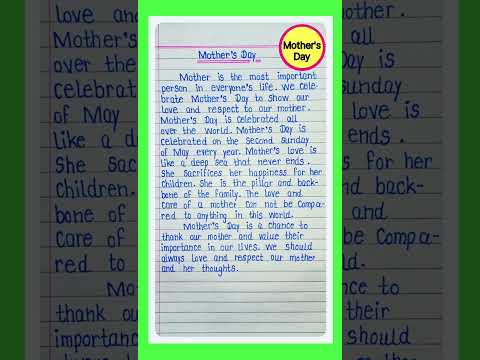 Mother's Day
Mother's
Day
Mother is the most important
person in everyone's life. We cele-
brate Mother's Day to show our
love and respect to our mother.
Mother's Day is celebrated all
over the World. Mother's Day is
celebrated on the second Sunday
of May every year. Mother's love is
like a deep sea that never ends.
She sacrifices her happiness for her
children. She is the pillar and back-
bone of the family. The love and
care of a mother can not be compa-
red to anything in this world.
Mother's Day is a chance to
thank our mother and value their
importance in our lives. We should
always love and respect our mother
and her thoughts.